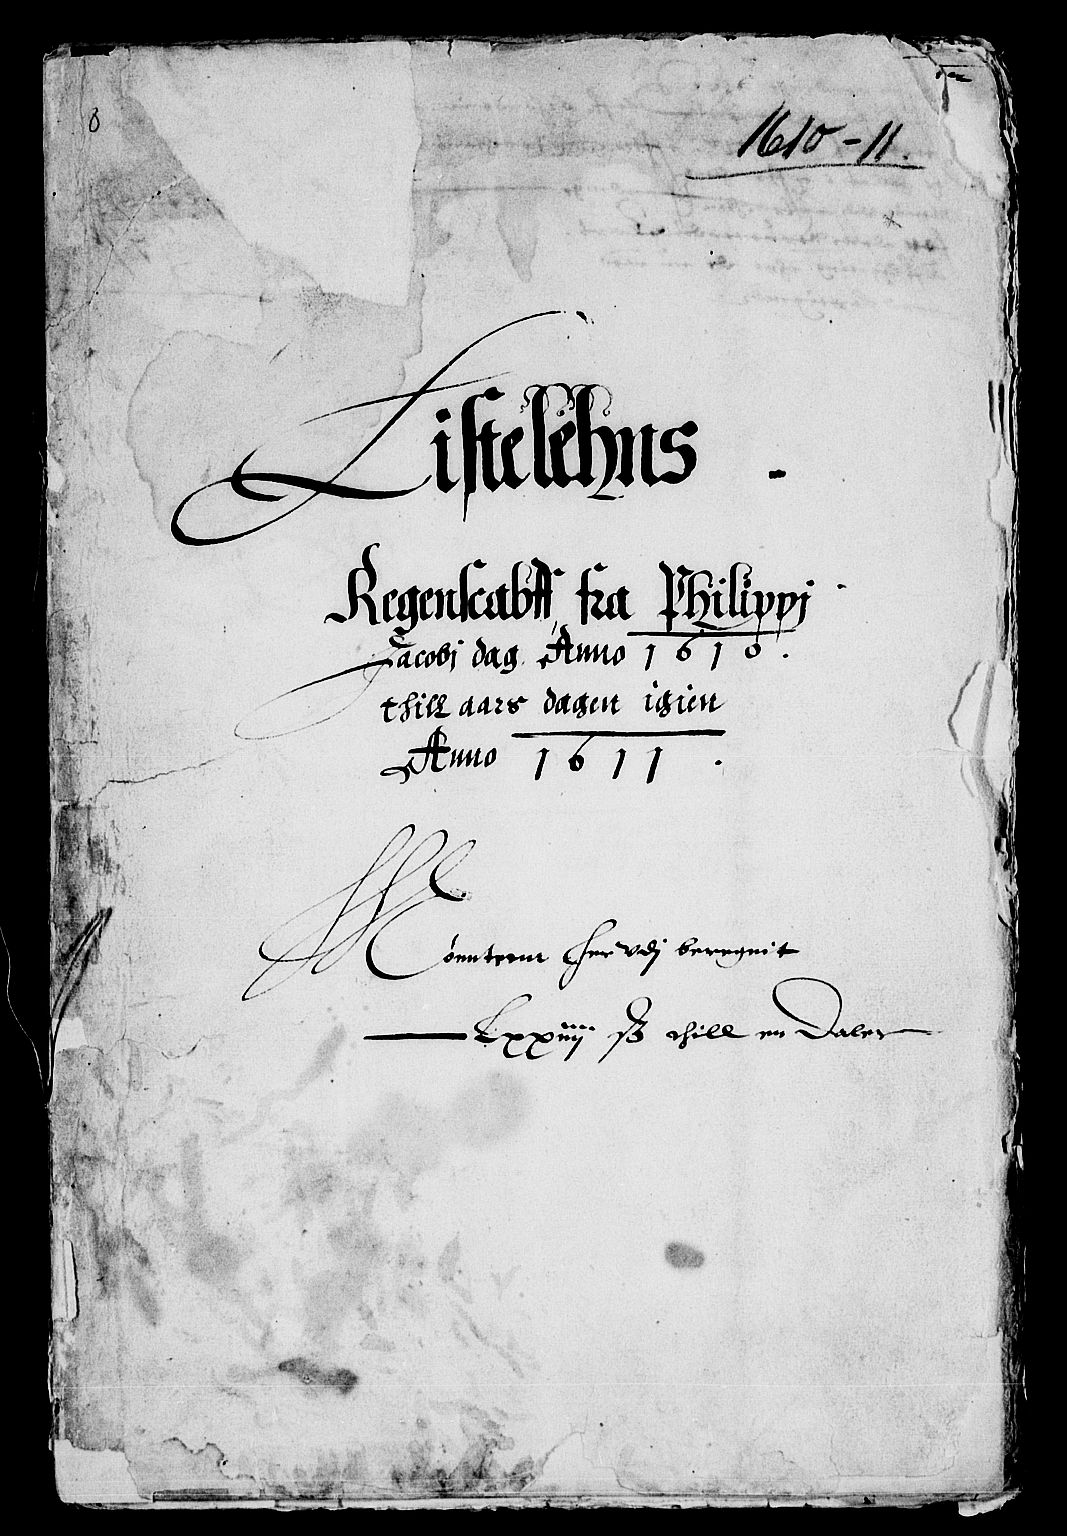 8
1610-11.
Listelehns
Regenskabff fra Philippj
Jacobj dag. Anno 1610.
thill aars dagen igien
Anno 1611.
hervdj beregnit
Lxxiiij ß thill en Daler